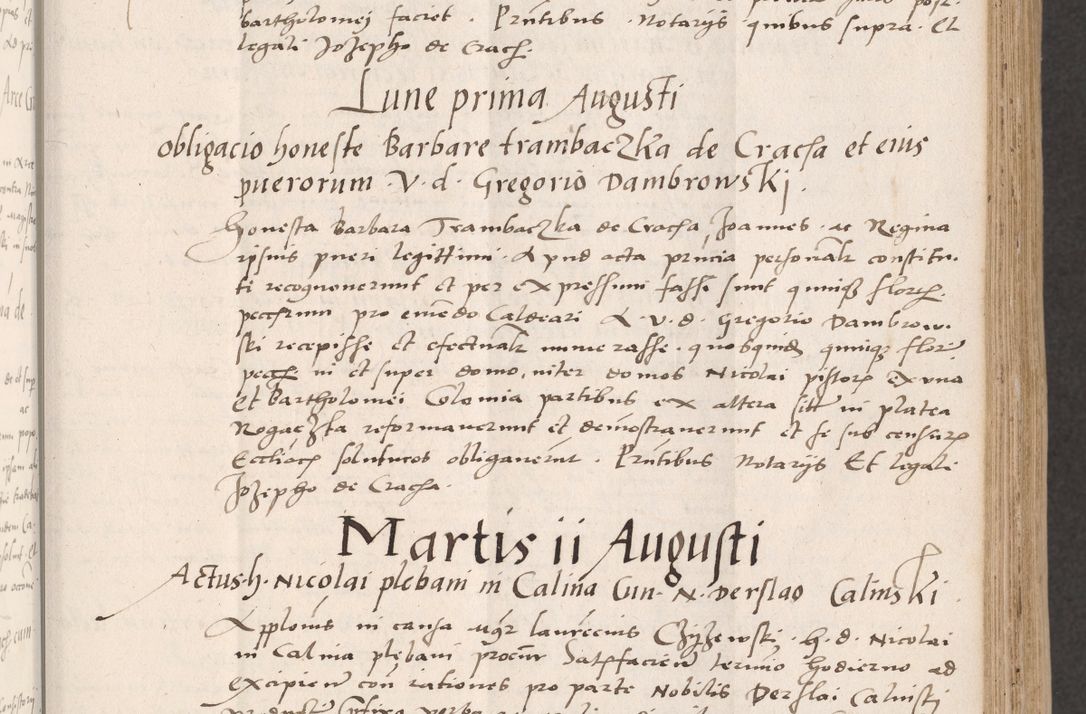 bartholomej faciet . Prntibus . Notarijs . quibus supra . Et
legali Jozepho de Crac.
Lune prima Augusti
obligacio honeste Barbare trambaczka de Cracha et eius
puerorum . V . d . Gregorio Dambrowskj .
Honesta Barbara Trambaczka de Cracha, Joannes . ac Regina
ipsius pueri legittimi . Apud acta pncia personalr constitu.
ti recognoverunt et per expressum fassi sunt quinqz flor
pro A . V . d . Gregorio Dambrow.
ski recepisse et efectualr numerasse . quosquidz quinqz flor
in et super domo, inter domos Nicolai pistor ex una
et Bartholomei Colomia partibus ex altera sitt in platea
Rogaczka reformaverunt et demostraverunt et se sub censur
soluturos obligaverunt . Prntibus Notarijs Et legali
Jozepho de Cracha .
Martis ii Augusti
Actus h . Nicolai plebani in Calina Cun . N . Derslao Calinski .
in causa mgr laurecius Czyzewski . h . d . Nicolai
in Calina plebani procur Satisfacien termio hodierno ad
excipien con rationes pro parte Nobilis Derslai Calinsti